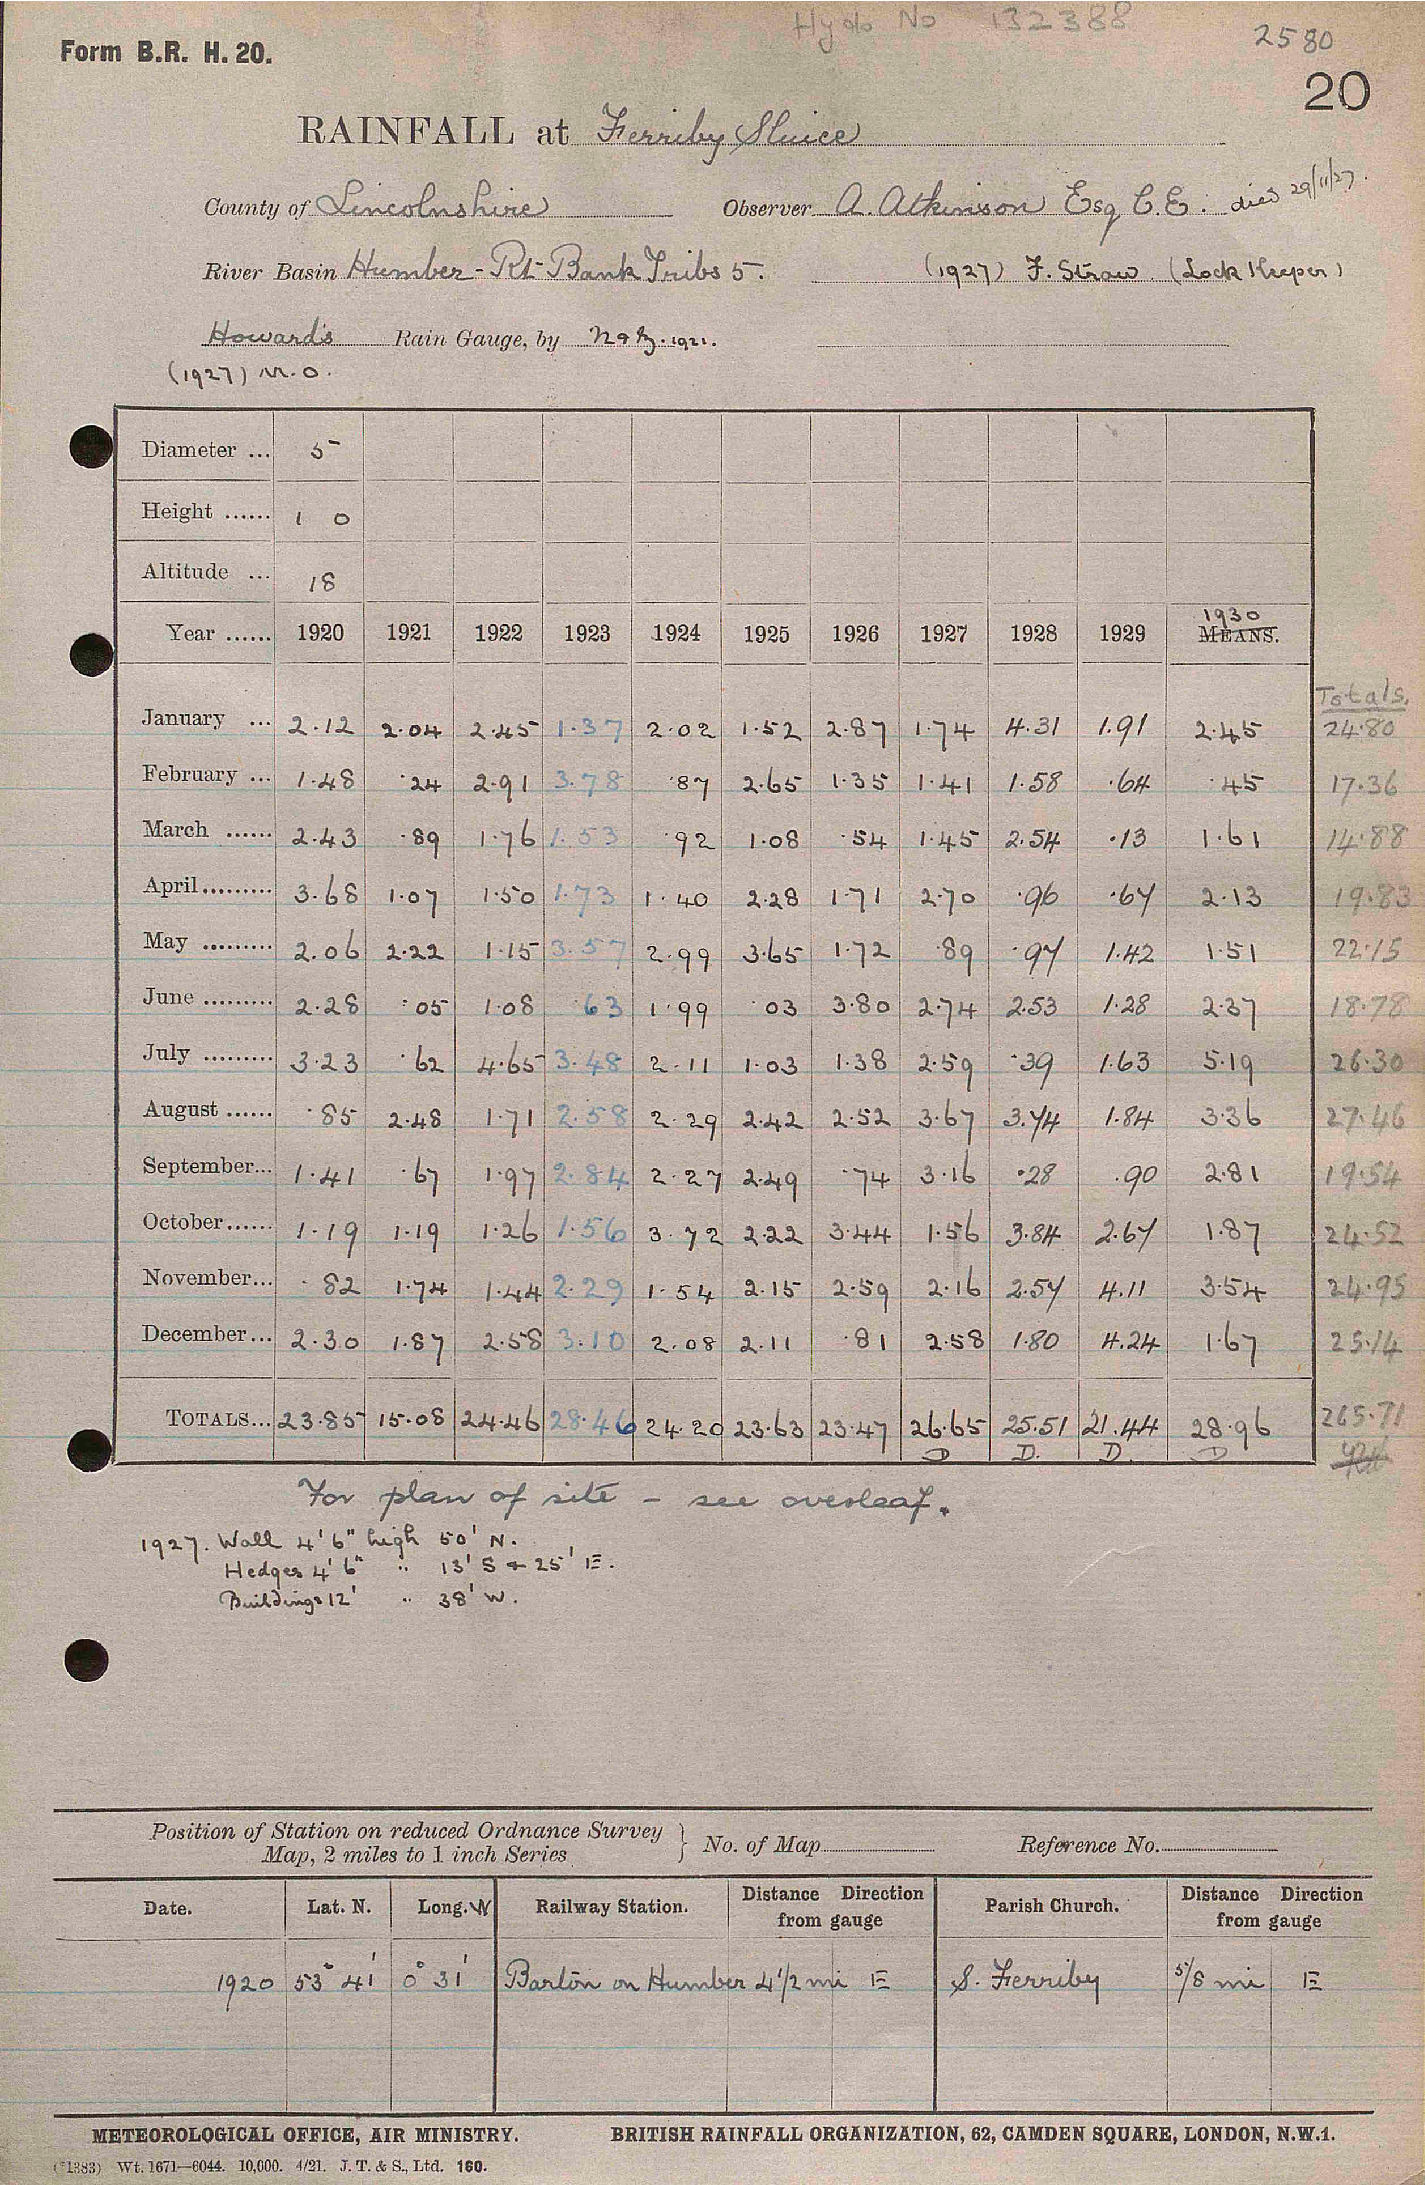 Hydo No 132388
2580
Form B.R. H. 20.
20
RAINFALL at Ferriby Sluice
County of Lincolnshire Observer A. Atkinson Esq C.E. died 29/11/27.
River Basin Humber - Rt Bank Tribs 5. (1927) F. Straw (Lock Keeper)
Howard's Rain Gauge, by N & Z. 1921.
(1927) M.O.
Diameter ... 5
Height ...... 1 0
Altitude ... 18
Year ...... 1920 1921 1922 1923 1924 1925 1926 1927 1928 1929 1930 MEANS.
Totals.
January ... 2.12 2.04 2.45 1.37 2.02 1.52 2.87 1.74 4.31 1.91 2.45 24.80
February ... 1.48 .24 2.91 3.78 .87 2.65 1.35 1.41 1.58 .64 .45 17.36
March ...... 2.43 .89 1.76 1.53 .92 1.08 .54 1.45 2.54 .13 1.61 14.88
April ......... 3.68 1.07 1.50 1.73 1.40 2.28 1.71 2.70 .96 .67 2.13 19.83
May ......... 2.06 2.22 1.15 3.57 2.99 3.65 1.72 .89 .97 1.42 1.51 22.15
June ......... 2.28 .05 1.08 .63 1.99 .03 3.80 2.74 2.53 1.28 2.37 18.78
July ......... 3.23 .62 4.65 3.48 2.11 1.03 1.38 2.59 .39 1.63 5.19 26.30
August ...... .85 2.48 1.71 2.58 2.29 2.42 2.52 3.67 3.74 1.84 3.36 27.46
September... 1.41 .67 1.97 2.84 2.27 2.49 .74 3.16 .28 .90 2.81 19.54
October...... 1.19 1.19 1.26 1.56 3.72 2.22 3.44 1.56 3.84 2.67 1.87 24.52
November... .82 1.74 1.44 2.29 1.54 2.15 2.59 2.16 2.57 4.11 3.54 24.95
December... 2.30 1.87 2.58 3.10 2.08 2.11 .81 2.58 1.80 4.24 1.67 25.14
TOTALS... 23.85 15.08 24.46 28.46 24.20 23.63 23.47 26.65 25.51 21.44 28.96 265.71
D D. D. D
For plan of site - see overleaf.
1927. Wall 4' 6" high 50' N.
Hedges 4' 6" " 13' S + 25' E.
Buildings 12' " 38' W.
Position of Station on reduced Ordnance Survey
Map, 2 miles to 1 inch Series } No. of Map Reference No.
Date. Lat. N. Long. W Railway Station. Distance Direction from gauge Parish Church. Distance Direction from gauge
1920 53° 41' 0° 31' Barton on Humber 4 1/2 mi E S. Ferriby 5/8 mi E
METEOROLOGICAL OFFICE, AIR MINISTRY. BRITISH RAINFALL ORGANIZATION, 62, CAMDEN SQUARE, LONDON, N.W.1.
(*1383) Wt. 1671—6044. 10,000. 4/21. J. T. & S., Ltd. 160.